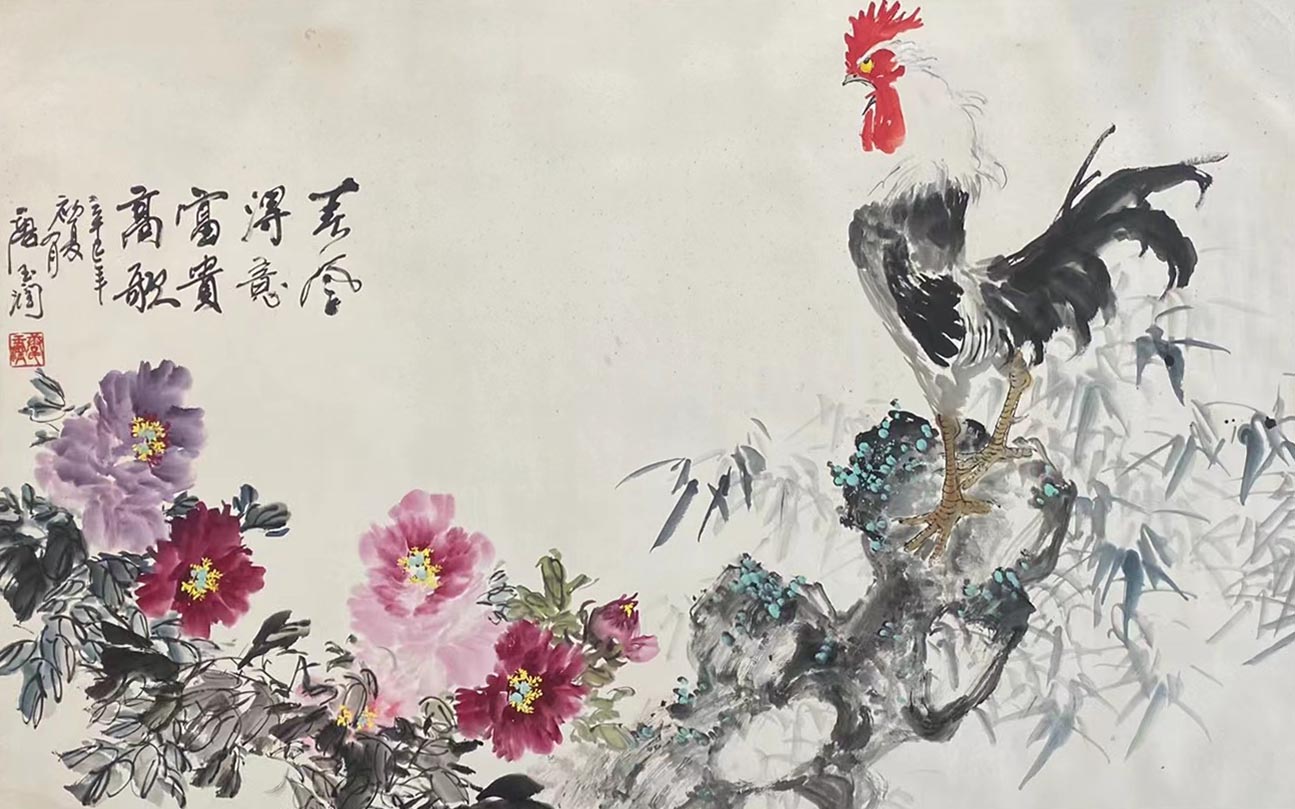 春风
得意
富贵
高歌
辛巳年
初夏月
唐玉润